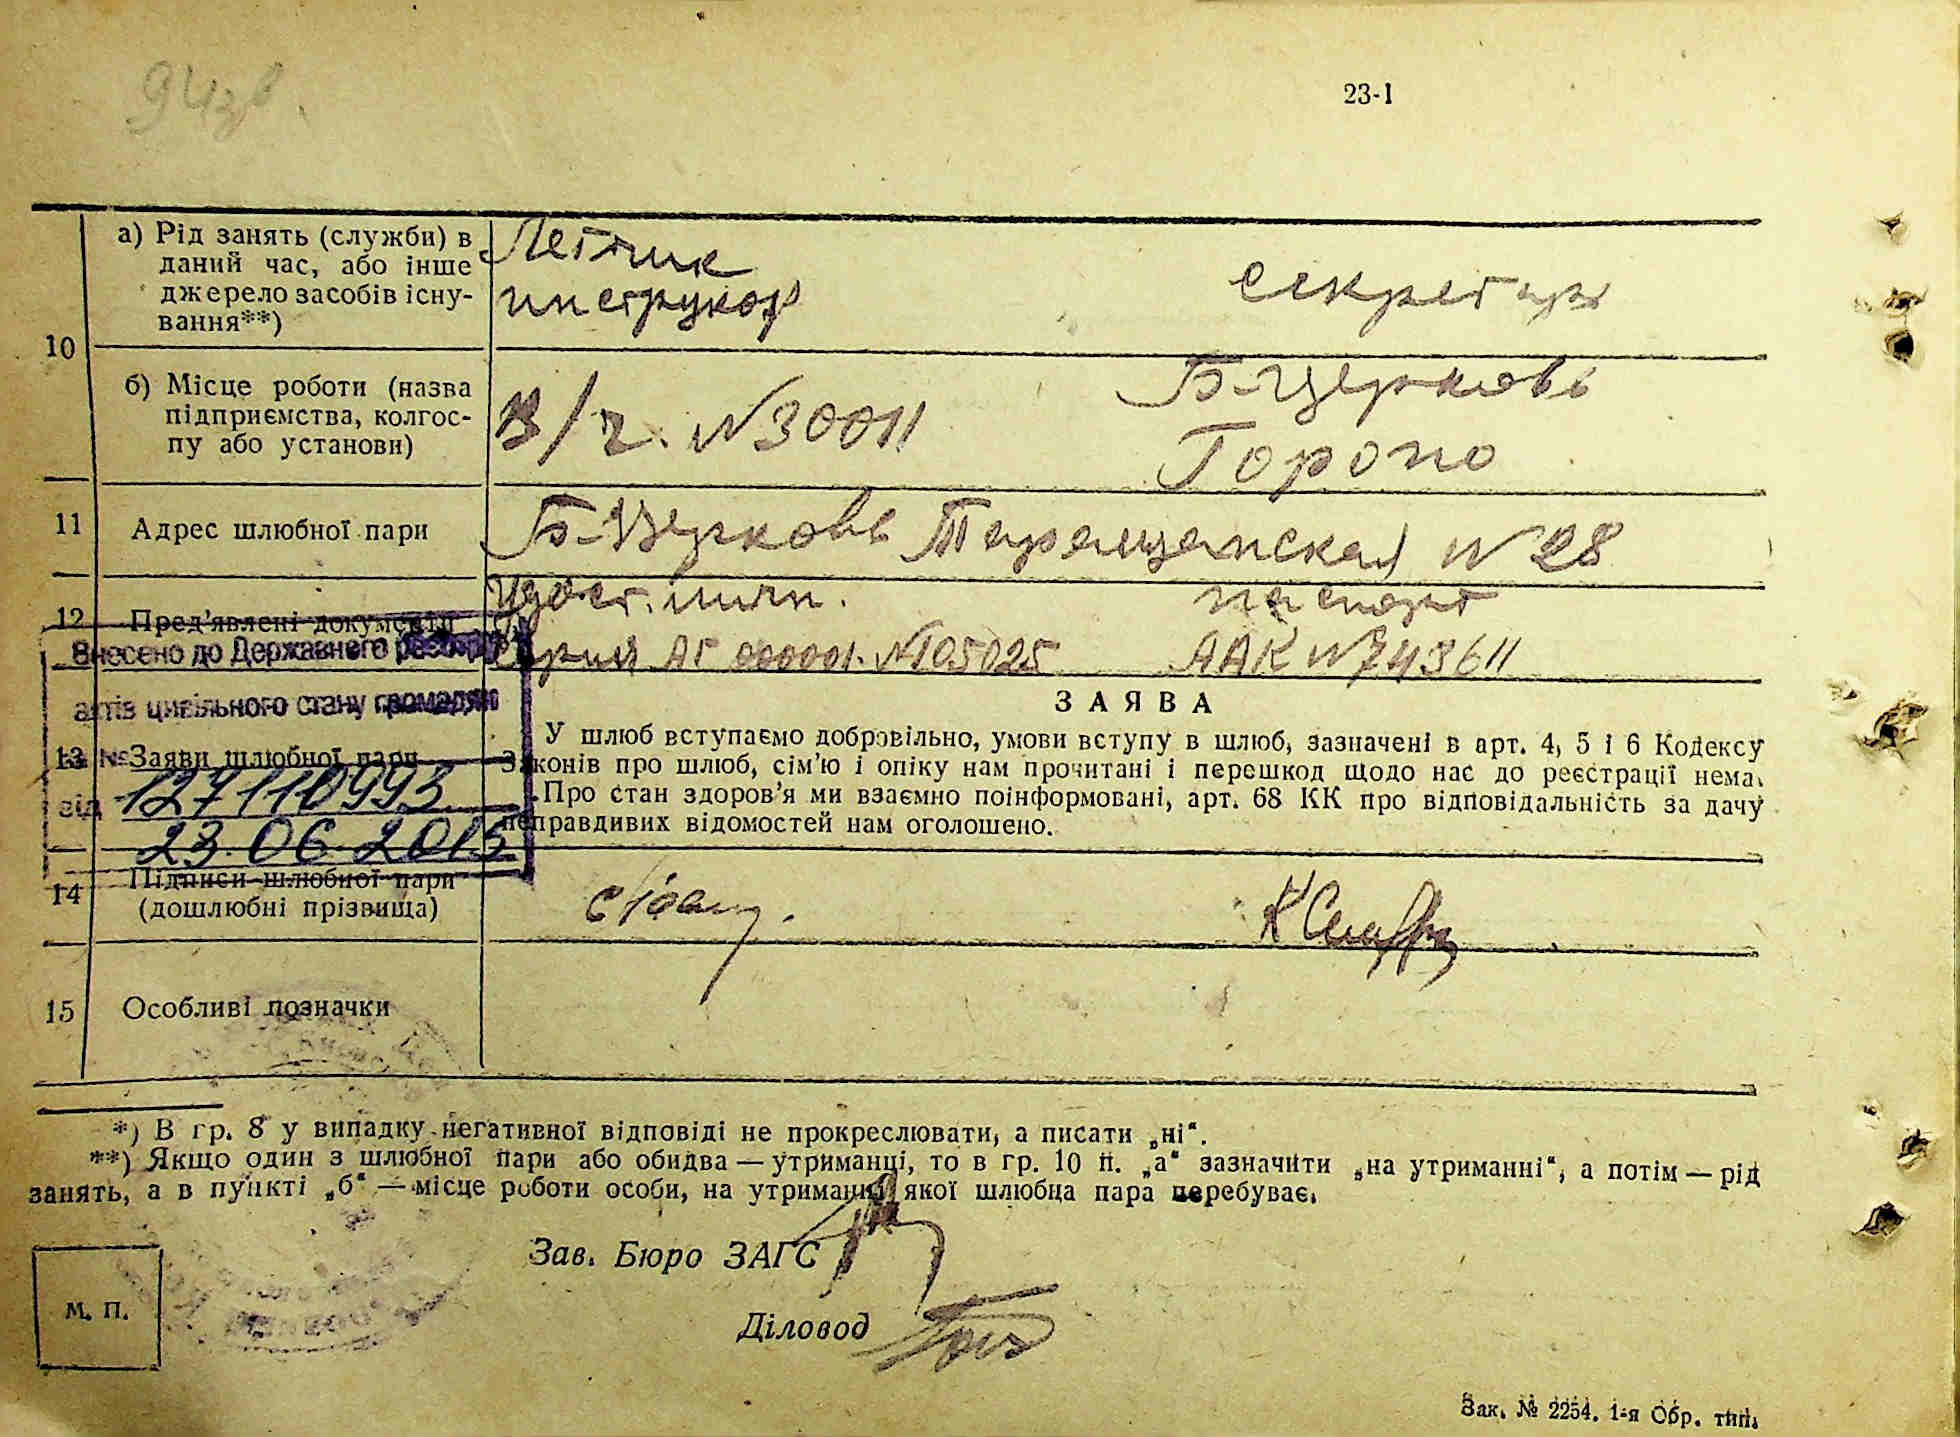 94зв.
23-1
10
а) Рід занять (служби) в
даний час, або інше
джерело засобів існу-
вання**)
Летчик
инструкор
секретарь
б) Місце роботи (назва
підприємства, колгос-
пу або установи)
В/ч. №30011
Б-Церковь
Гороно
11
Адрес шлюбної пари
Б-Церковь Таращанская №28
12
Пред’явлені документи
Удост. личн.
Серия АГ 000001. №105025
паспорт
ААК №743611
Внесено до Державного реєстру
актів цивільного стану громадян
№ 127110993
від 23.06.2015
13
Заяви шлюбної пари
ЗАЯВА
У шлюб вступаємо добровільно, умови вступу в шлюб, зазначені в арт. 4, 5 і 6 Кодексу
Законів про шлюб, сім’ю і опіку нам прочитані і перешкод щодо нас до реєстрації нема.
Про стан здоров’я ми взаємно поінформовані, арт. 68 КК про відповідальність за дачу
неправдивих відомостей нам оголошено.
14
Підписи шлюбної пари
(дошлюбні прізвища)
15
Особливі позначки
*) В гр. 8 у випадку негативної відповіді не прокреслювати, а писати „ні“.
**) Якщо один з шлюбної пари або обидва — утриманці, то в гр. 10 п. „а“ зазначити „на утриманні“, а потім — рід
занять, а в пункті „б“ — місце роботи особи, на утриманні якої шлюбна пара перебуває.
Зав. Бюро ЗАГС
Діловод
М. П.
Зак. № 2254. 1-я Обр. тип.